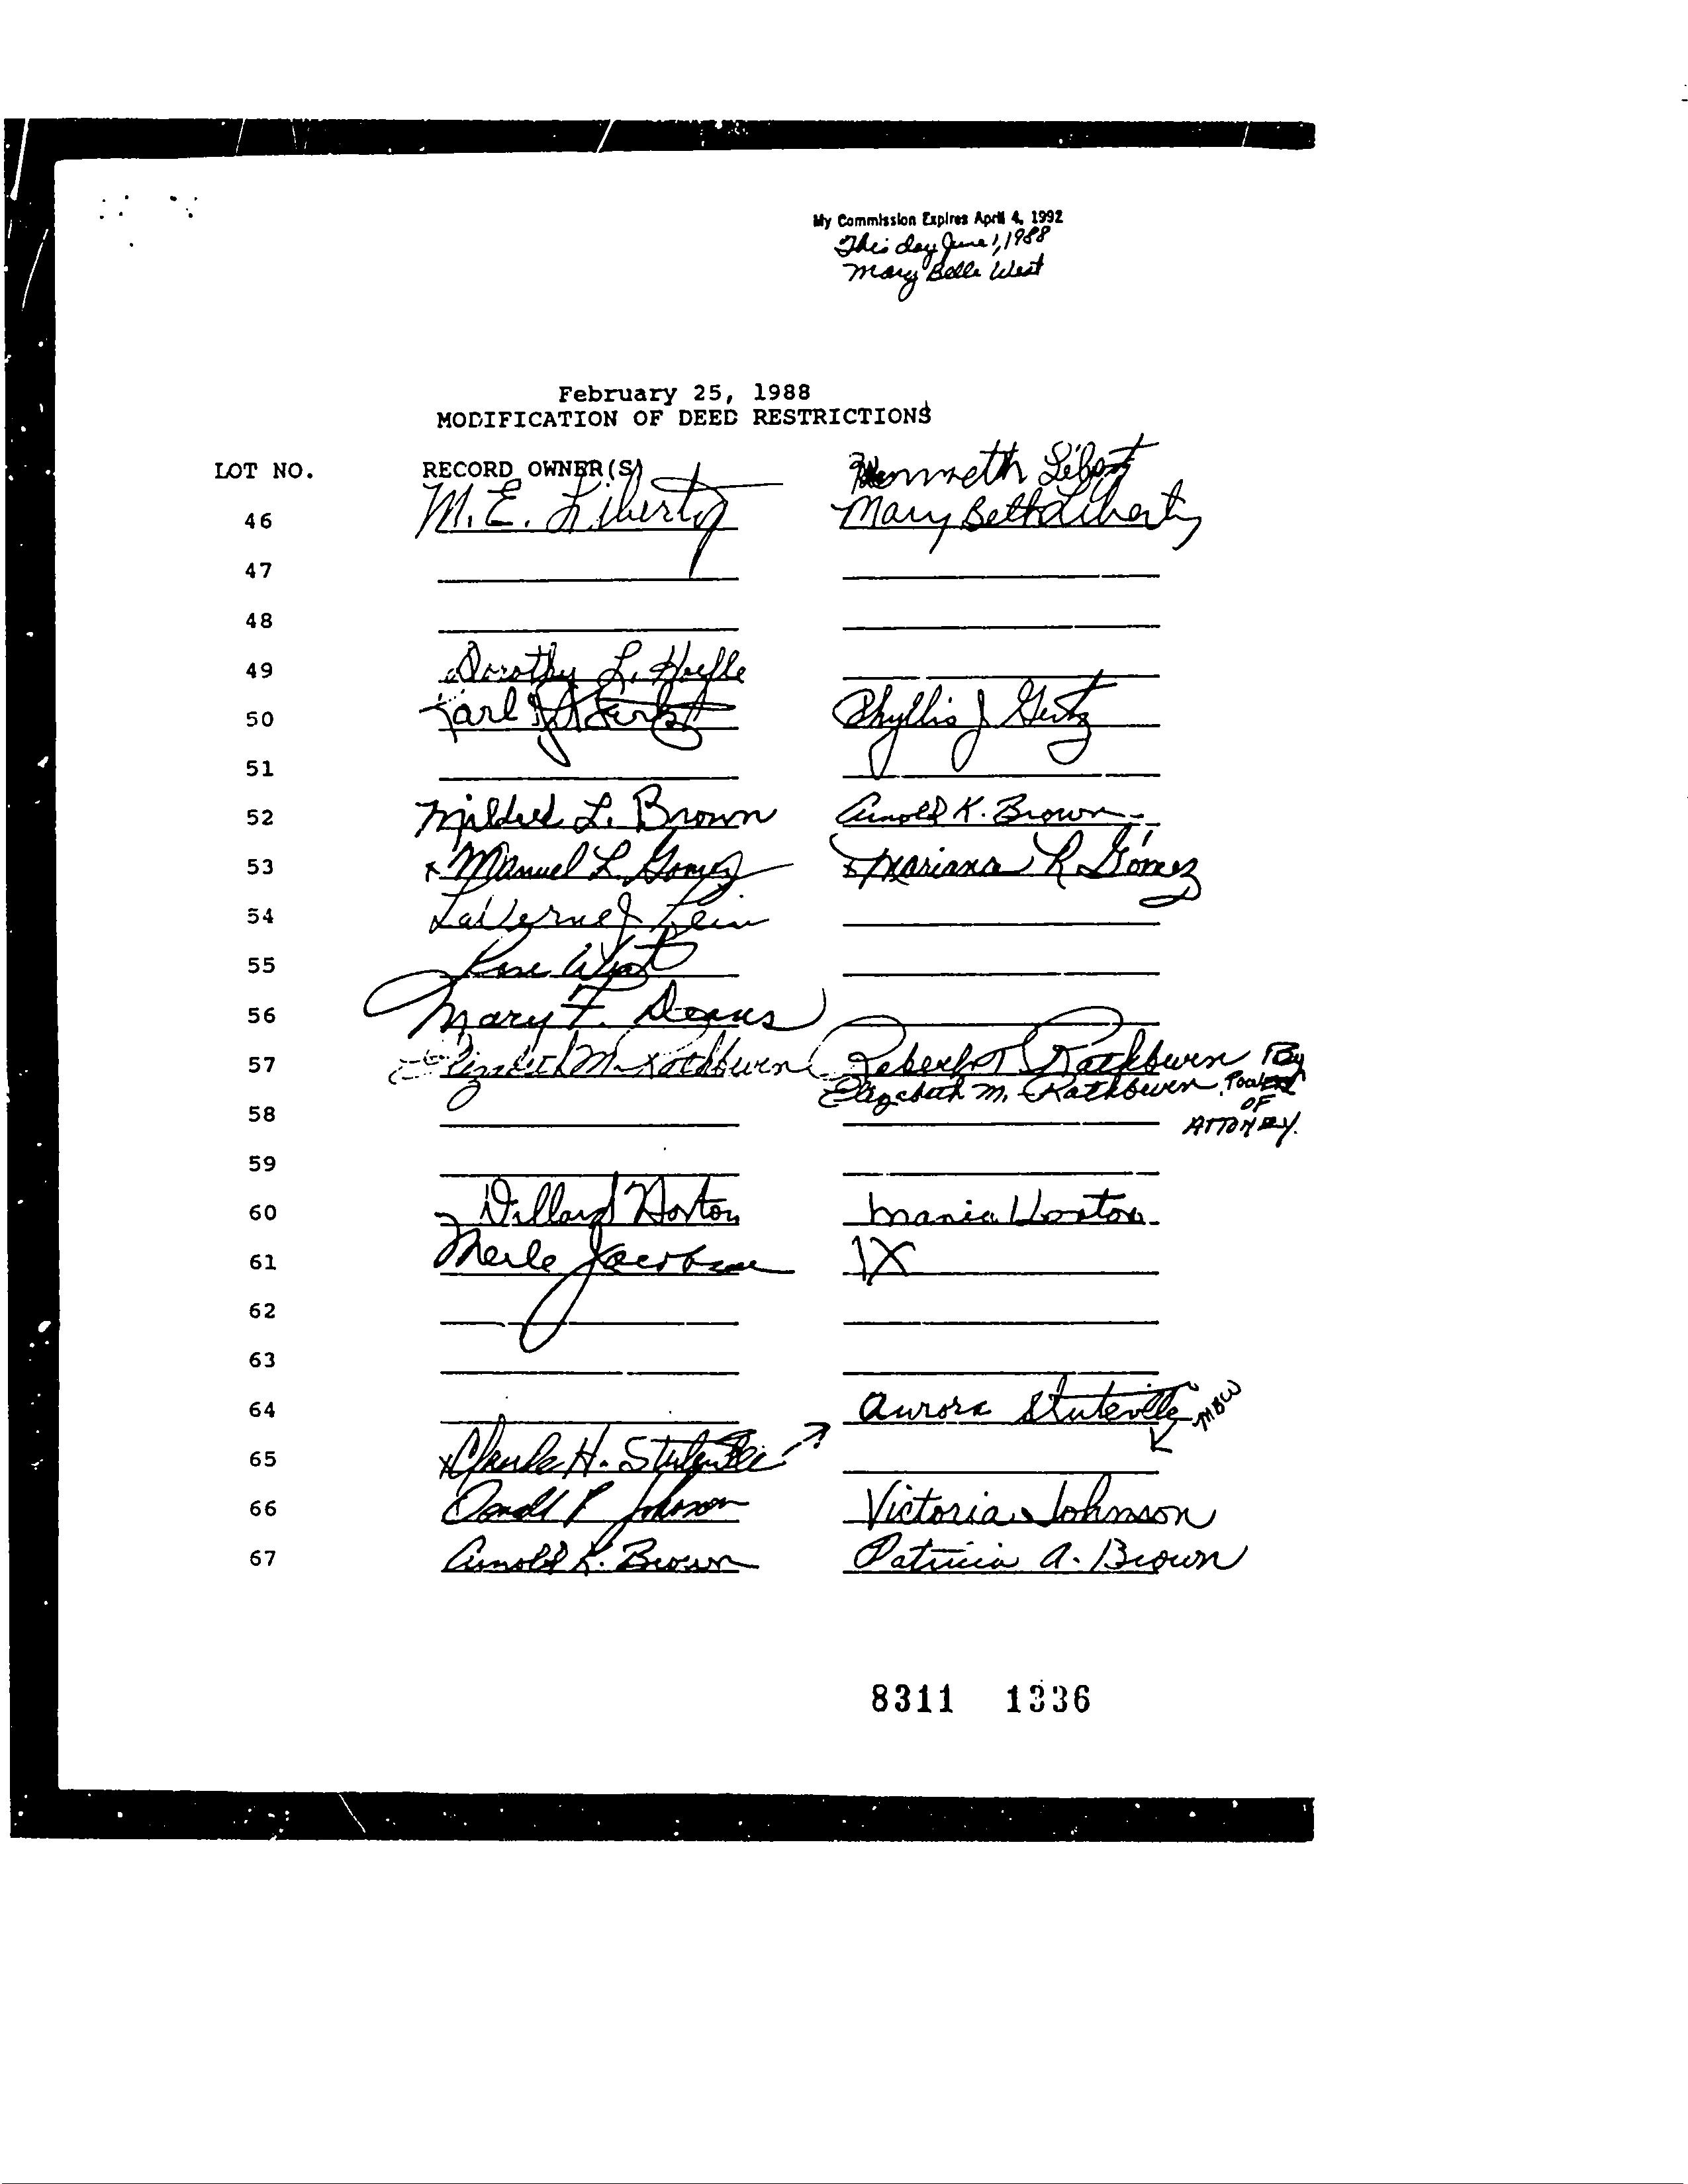 My Commission Expires April 4, 1992
This day June 1, 1988
Mary Belle West
February 25, 1988
MODIFICATION OF DEED RESTRICTIONS
LOT NO. RECORD OWNER(S) Kenneth Liberty
46 M. E. Liberty Mary Beth Liberty
47
48
49 Dorothy L. Hoefle
50 Karl J. Gertz Phyllis J Gertz
51
52 Mildred L. Brown Arnold K. Brown
53 x Manuel L. Gomez x Mariana R Gomez
54 LaVerne J Lein
55 Rose West
56 Mary F. Deans
57 Elizabeth M. Rathburn Robert Rathburn By
Elizabeth M. Rathburn Power
58 OF
ATTORNEY.
59
60 Dillard Horton Maria Horton
61 Merle 1X
62
63
64 Aurora Stuteville MBW
65 x H. Stuteville
66 Donald P Johnson Victoria Johnson
67 Arnold K. Brown Patricia A. Brown
8311 1336